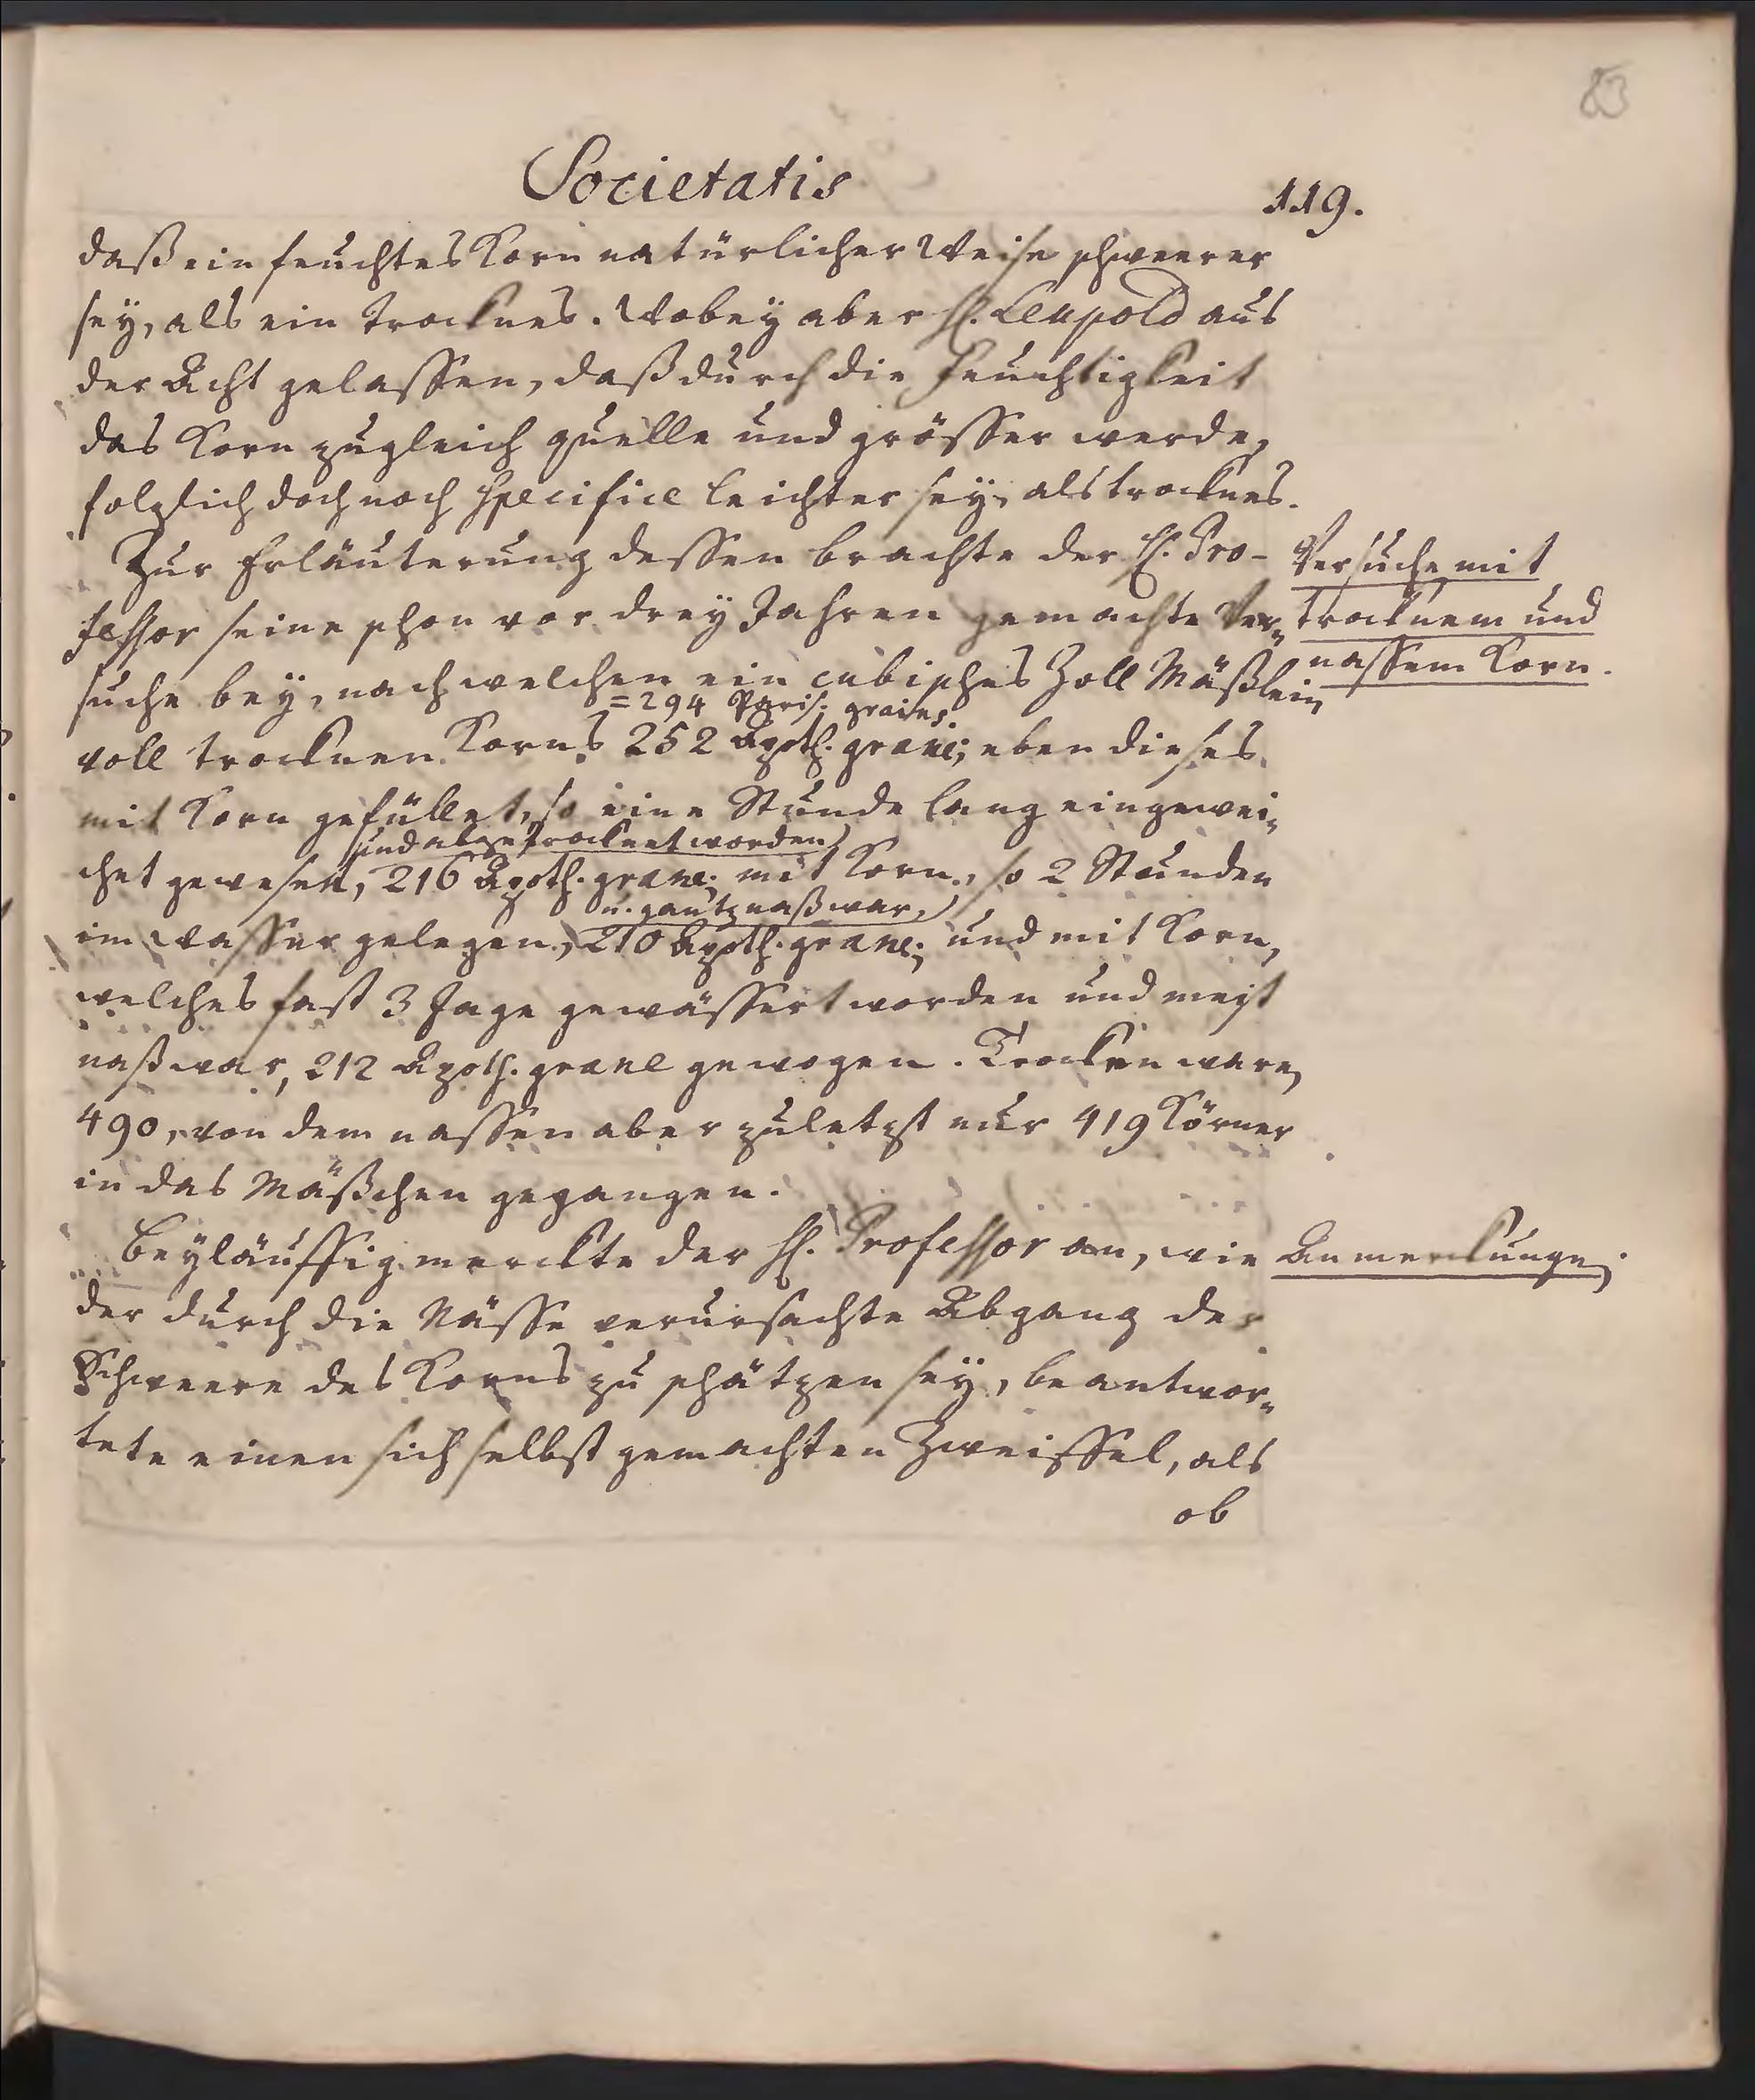 83
Societatis
119.
daß ein feuchtes Korn natürlicher Weise schweerer
sey, als ein trocknes. Wobey aber H. Leupold aus
der Acht gelassen, daß durch die Feuchtigkeit
das Korn zugleich quelle und grösser werde,
folglich doch noch specifice leichter sey, als trocknes.
Zur Erläuterung dessen brachte der H. Pro-
fessor seine schon vor drey Jahren gemachte Ver-
suche bey, nach welchen ein cubisches Zoll Mäßlein
= 294 Paris: grains.
voll trocknen Korns 252 Apoth. grane; eben dieses
mit Korn gefüllet, so eine Stunde lang eingewei-
und abgetrocknet worden
chet gewesen, 216 Apoth. grane; mit Korn, so 2 Stunden
u. gantz naß war,
im Wasser gelegen, 210 Apoth. grane; und mit Korn,
welches fast 3 Tage gewässert worden und meist
naß war, 212 Apoth. grane gewogen. Trocken waren
490, von dem nassen aber zuletzt nur 419 Körner
in das Mäßchen gegangen.
Beyläuffig merckte der H. Professor an, wie
der durch die Nässe verursachte Abgang der
Schweere des Korns zu schätzen sey, beantwor-
tete einen sich selbst gemachten Zweiffel, als
ob
Versuche mit
trocknem und
nassem Korn.
Anmerckungen.